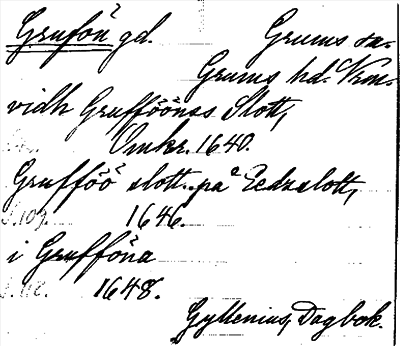 Gruföngd. Grums sn.
Grums hd. Vrm.
vidh Grufföönas Slott,
Omkr. 1640.
Grufföö slott..på Edzslott,
S.109. 1646.
i Grufföna
1648.
Gyllenius, Dagbok.